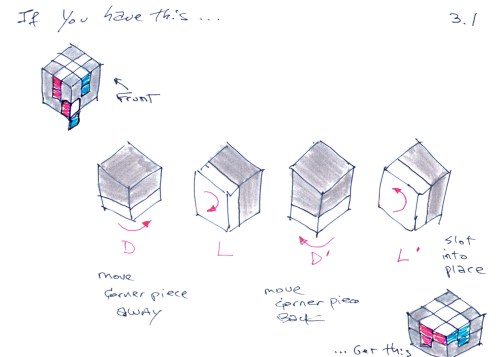 If you have this ...
3.1
Front
D
L
D'
L'
move
corner piece
away
move
corner piece
back
slot
into
place
... Get this